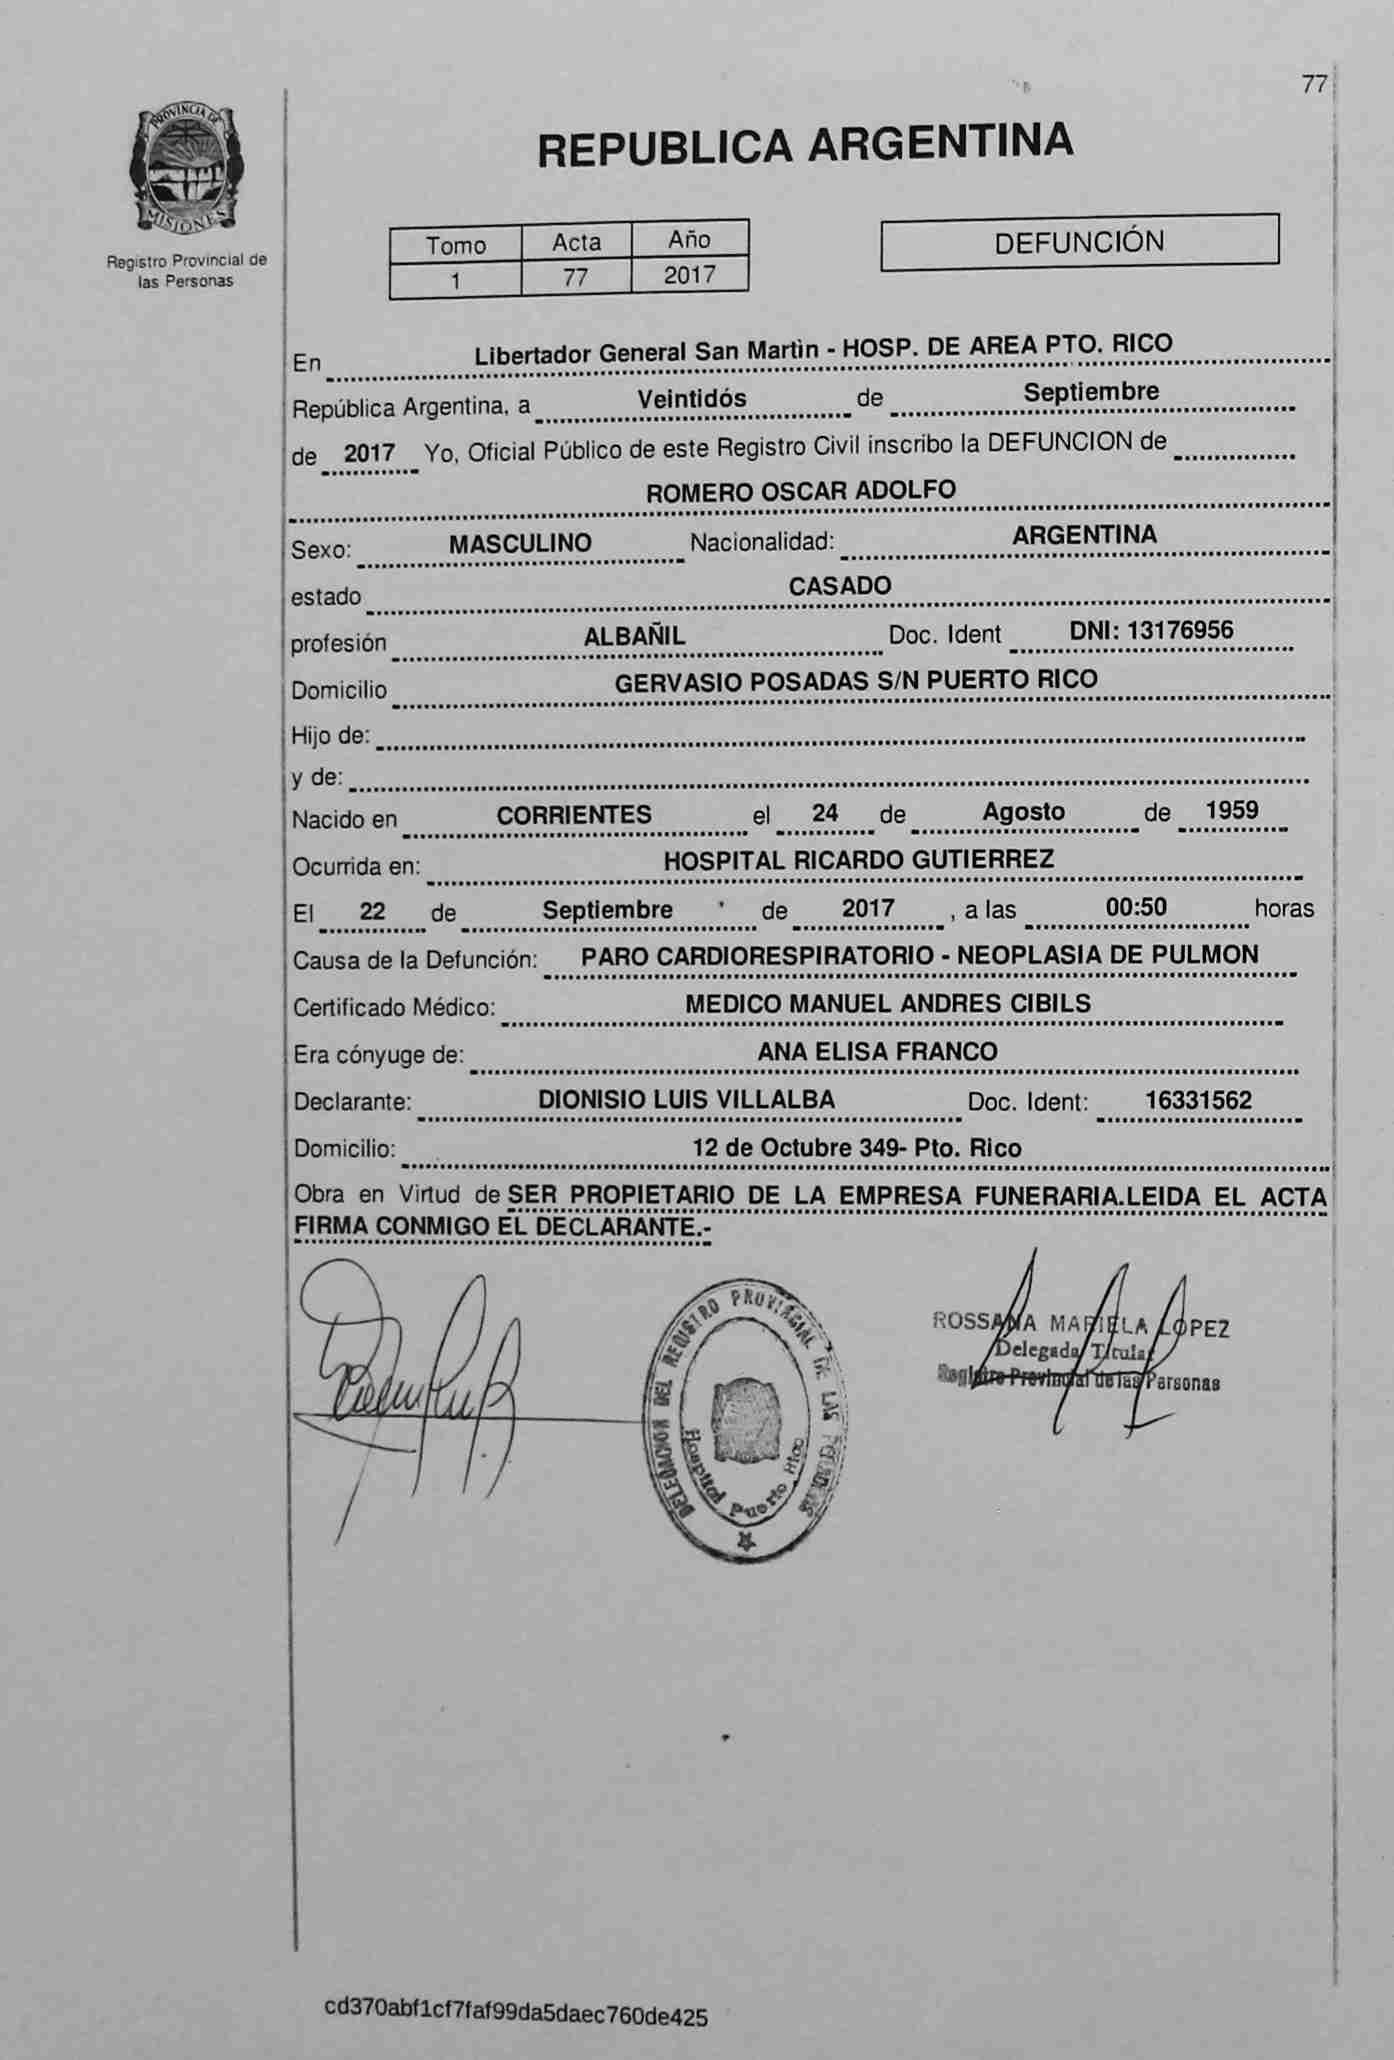 77
PROVINCIA DE
MISIONES
Registro Provincial de
las Personas
REPUBLICA ARGENTINA
Tomo Acta Año
1 77 2017
DEFUNCIÓN
En Libertador General San Martìn - HOSP. DE AREA PTO. RICO
República Argentina, a Veintidós de Septiembre
de 2017 Yo, Oficial Público de este Registro Civil inscribo la DEFUNCION de
ROMERO OSCAR ADOLFO
Sexo: MASCULINO Nacionalidad: ARGENTINA
estado CASADO
profesión ALBAÑIL Doc. Ident DNI: 13176956
Domicilio GERVASIO POSADAS S/N PUERTO RICO
Hijo de:
y de:
Nacido en CORRIENTES el 24 de Agosto de 1959
Ocurrida en: HOSPITAL RICARDO GUTIERREZ
El 22 de Septiembre de 2017 , a las 00:50 horas
Causa de la Defunción: PARO CARDIORESPIRATORIO - NEOPLASIA DE PULMON
Certificado Médico: MEDICO MANUEL ANDRES CIBILS
Era cónyuge de: ANA ELISA FRANCO
Declarante: DIONISIO LUIS VILLALBA Doc. Ident: 16331562
Domicilio: 12 de Octubre 349- Pto. Rico
Obra en Virtud de SER PROPIETARIO DE LA EMPRESA FUNERARIA.LEIDA EL ACTA
FIRMA CONMIGO EL DECLARANTE.-
DELEGACION DEL REGISTRO PROVINCIAL DE LAS PERSONAS
Hospital Puerto Rico
ROSSANA MARIELA LOPEZ
Delegada Titular
Registro Provincial de las Personas
cd370abf1cf7faf99da5daec760de425